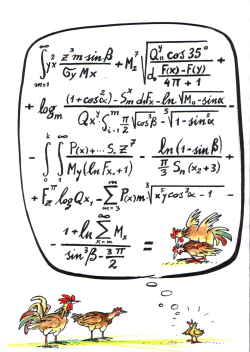 ∞ ∫ m=1 yx² z³ m·sinβ / Gy Mx + Mz⁷ √ Qⁿ cos 35° / d₀ F(x)-F(y) / 4π + 1 +
+ logm (1+cosα²) - Smˣ dFx - ln √M₀ - sinα / Qxʸ Sᵐ i=1 π/2 √cos³β - ⁵√1 - sin²α +
- ∫ ∫ P(x) + ... S. z⁷ / My (ln Fx, +1) - ln (1 - sin β) / π/3 Sn (x₂ + 3) +
+ Fzⁿ log Qx, - Σ m=3 P(x) m ³√x⁵y cos³α - 1 -
- 1 + ln Σ x=m Mx / sin³β - 3π/2 =